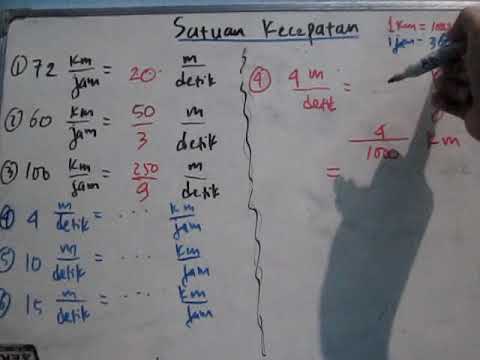 Satuan Kecepatan
① 72 km/jam = 20 m/detik
② 60 km/jam = 50/3 m/detik
③ 100 km/jam = 250/9 m/detik
④ 4 m/detik = ... km/jam
⑤ 10 m/detik = ... km/jam
⑥ 15 m/detik = ... km/jam
1 km =
1 jam =
④ 4 m/detik =
4/1000 km
=